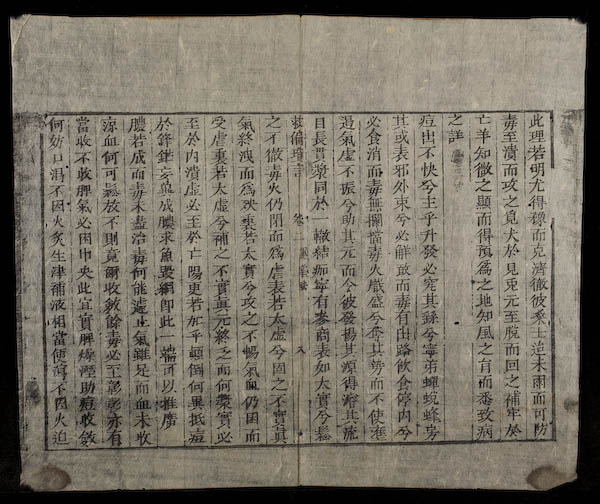 此理若明尤得祿而克濟徹彼桑土迨未雨而可防
毒至潰而攻之覓犬於見兎亢至脫而回之補牢於
亡羊知微之顯而得預為之地知風之自而番致病
之詳
痘出不快兮主乎升發必究其孫兮寧弟蟬蛻蜂房
其或表邪外束兮必解散而毒有出路飲食停內兮
必食消而毒無攔當毒火熾盛兮奪其勢而不使壅
遏氣虛不振兮助其元而令彼發揚其源得濟其流
目長貫漿同於一轍結痂寧有參商表如大實兮鬆
救偏瑣言 卷二 八
之不徹毒火仍閉而為虐表若太虛兮固之不實真
氣終洩而為殃裏若太實兮攻之不暢氣血仍困而
受虐裏若太虛兮補之不實真元終乏而何漿實必
至於內潰虛必至於亡陽更若加乎顛倒何異抵痘
於鋒鋩妄冀成膿求魚設網即此一端可以推廣
膿若成而毒未盡治毒何能遽止氣雖足而血未收
涼血何可鬆放不則竟爾收斂餘毒必至彰彰亦有
當收不收脾氣必困中央此宜實脾燥溼助痘收斂
何妨口渴不因火炙生津補液相當便薄不因火迫